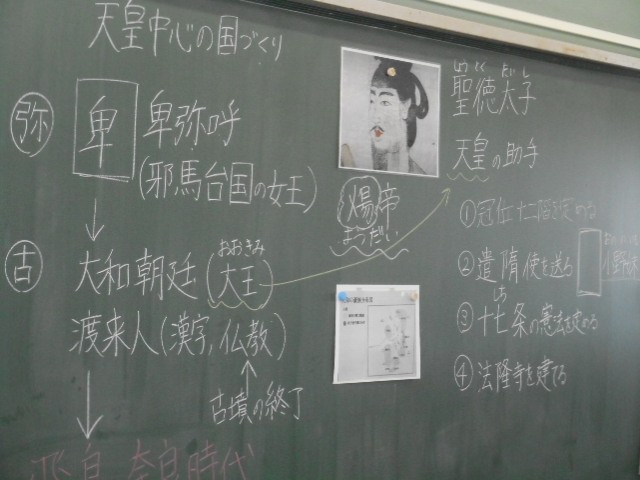 天皇中心の国づくり
弥
卑
卑弥呼
(邪馬台国の女王)
古
おおきみ
大和朝廷(大王)
渡来人(漢字,仏教)
古墳の終了
飛鳥 奈良時代
煬帝
ようだい
しょうとくたいし
聖徳太子
天皇の助手
①冠位十二階を定める
②遣隋使を送る
小野妹子
③十七条の憲法を定める
④法隆寺を建てる